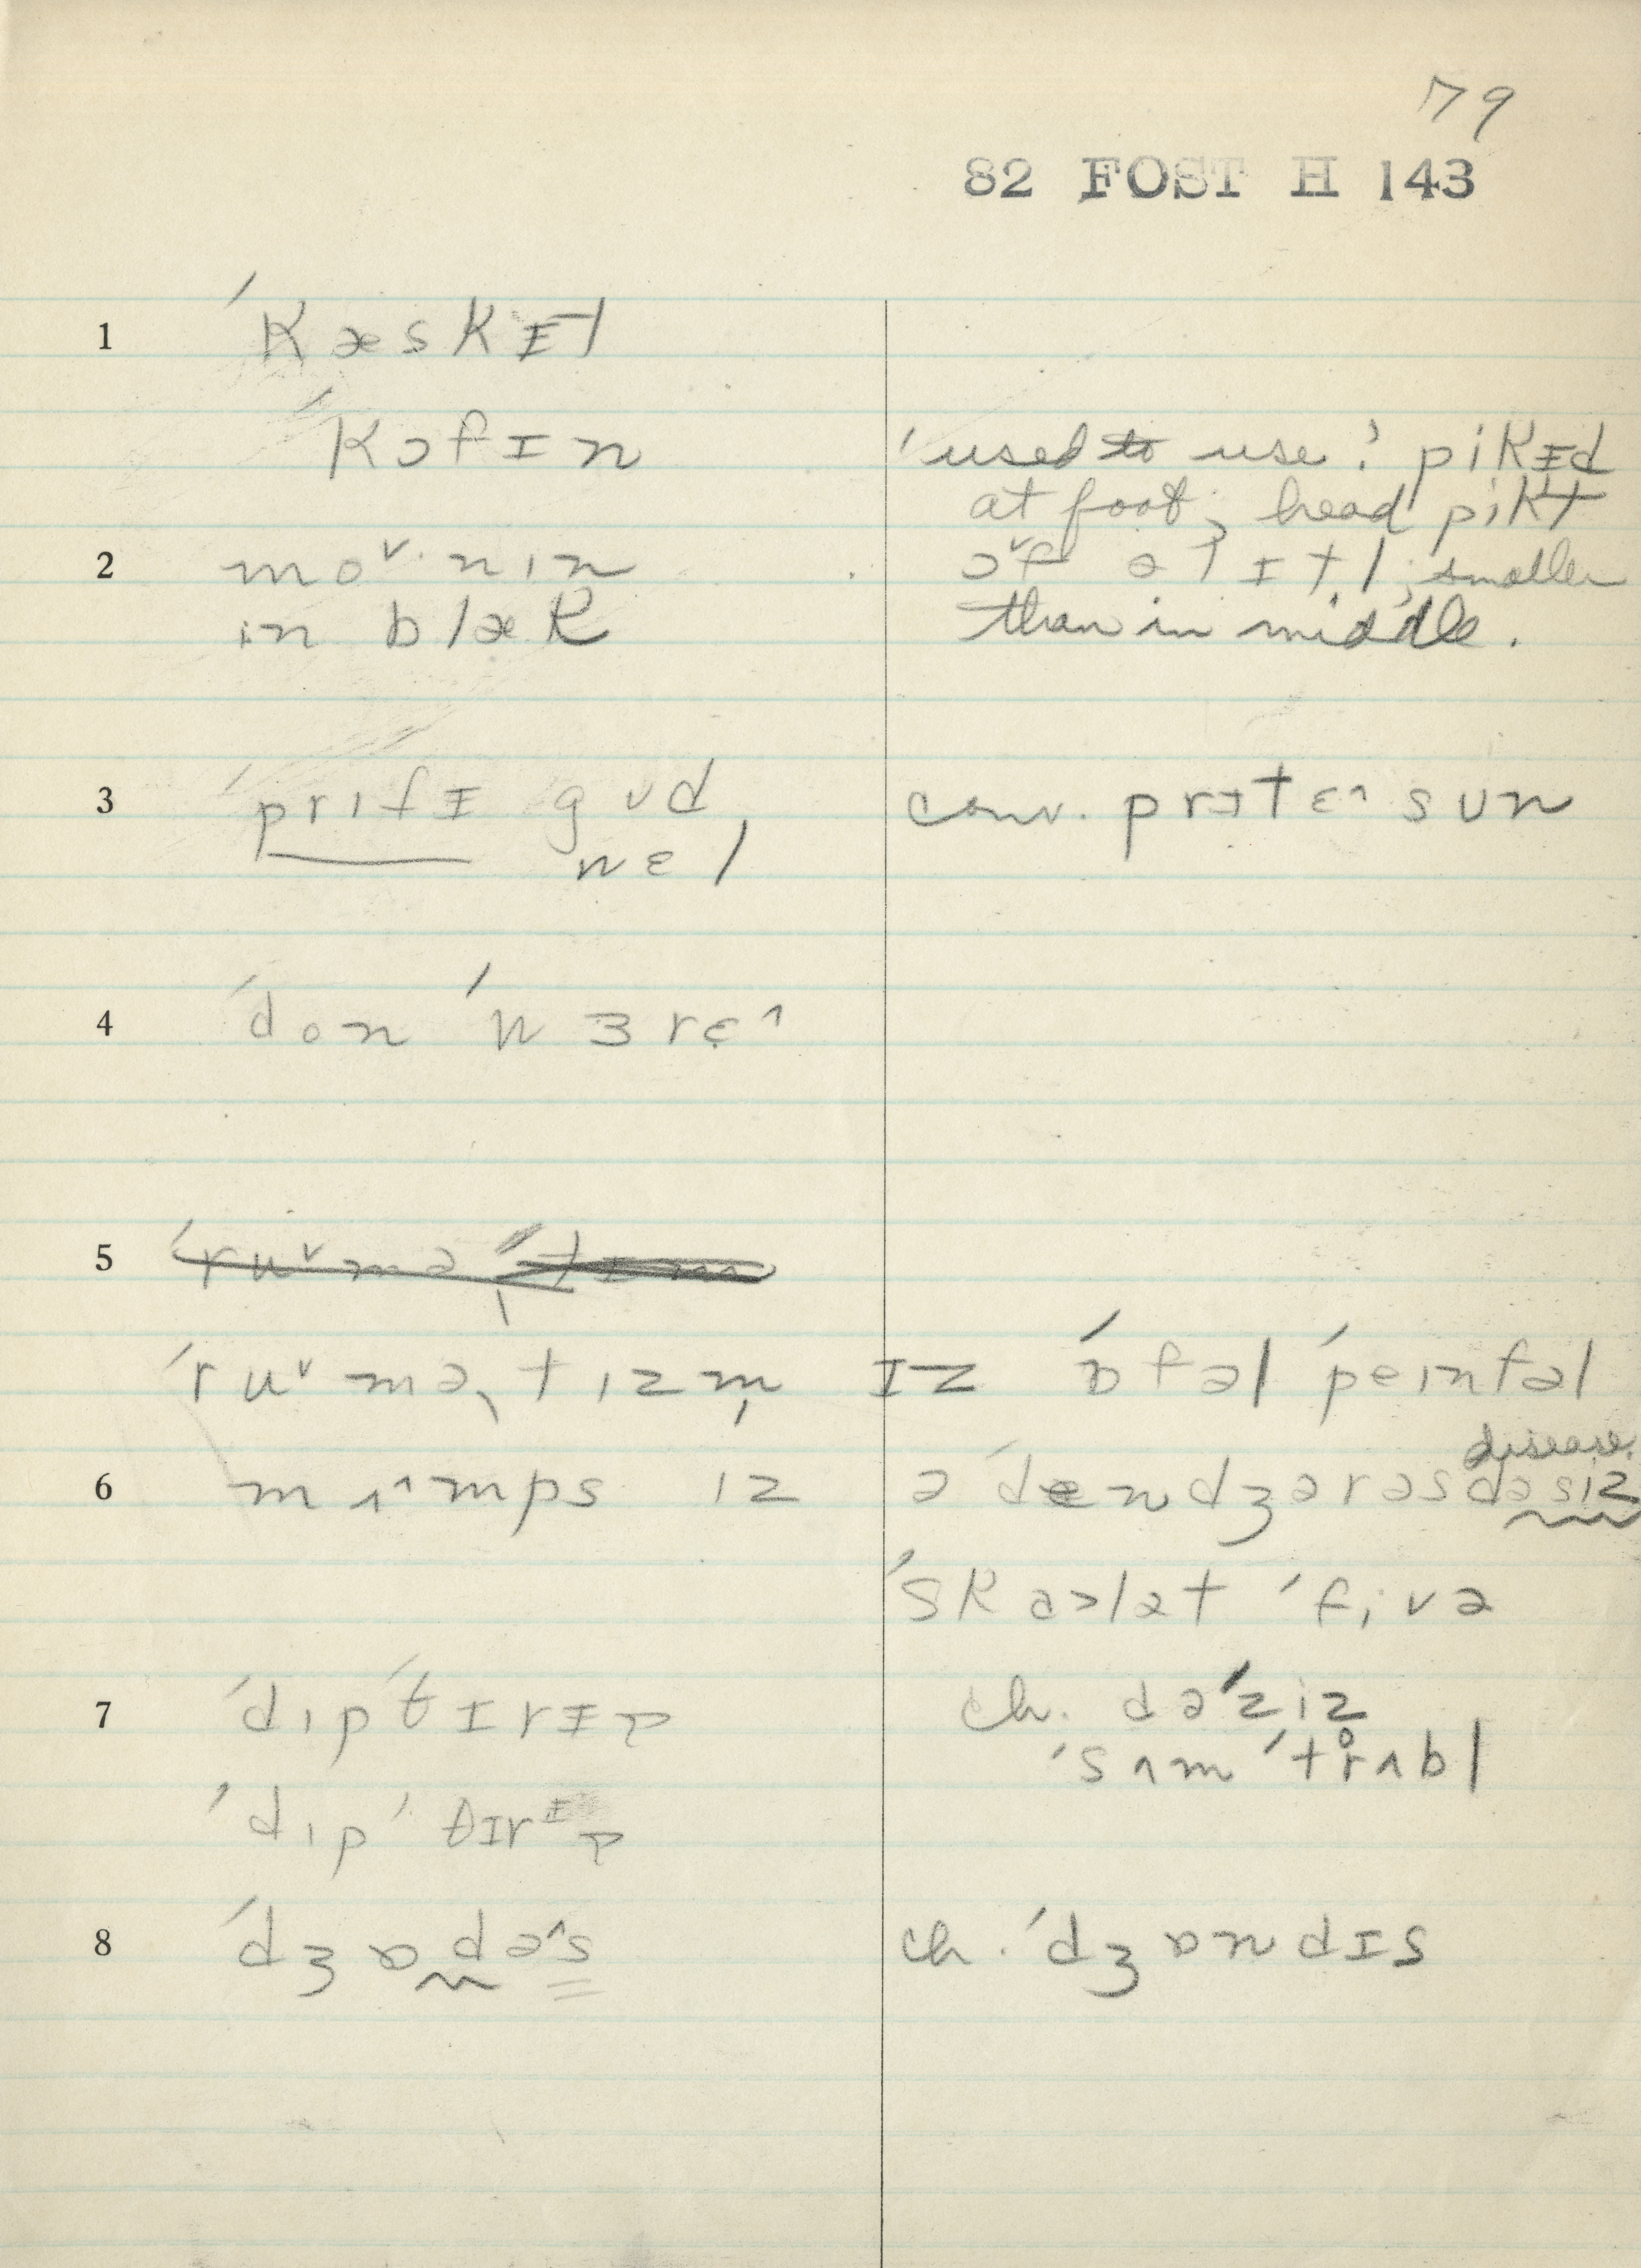 79
82 FOST H 143
1 ˈkæskɪt
ˈkɔfɪn
'used to use': pikɪd
at foot, head pikt
ɔˇf ə lɪtl; smaller
than in middle.
2 moˇ·nin
in blæk
3 ˈprɪtɪ gud,
wɛl
conv. prɪtɛ^ sun
4 ˈdon ˈwɜrɛ^
5 ˈruˇmə
ˈruˇməˌtizm̩ ɪz ˈɒfəl ˈpeinfəl
disease.
6 mʌ^mps iz ə ˈdendʒərəs dəsiz
ˈskaəlat ˈfivə
7 ˈdipˈtɪrɪə
ch. dəˈziz
ˈsʌm ˈtr̥ʌbl
ˈdipˈθɪrɪə
8 ˈdʒɒdə^s
ch. ˈdʒɒndɪs